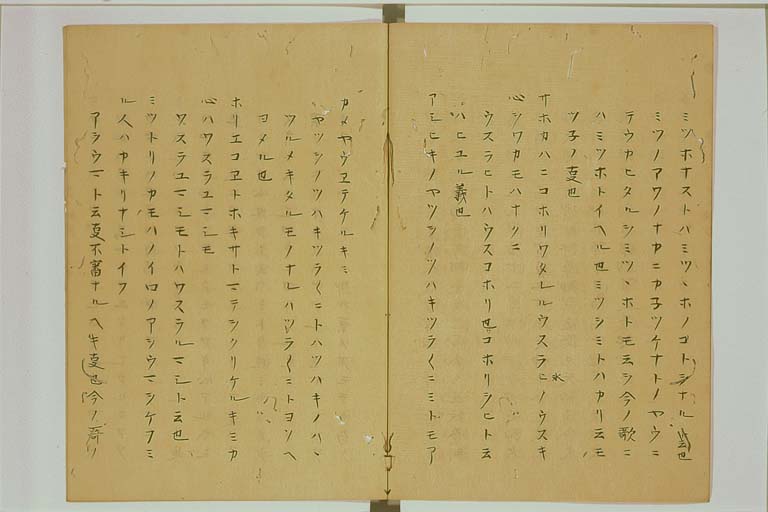 ミツホナストハミツヽホノコトシナル 也
ミツノアワノナカニカ子ツケナトノヤウニ
テウカヒタルシミツヽホトモ云シ今ノ歌ニ
ハミツホトイヘル也ミツシミトハカリ云モ
ツ子ノ㕝也
サホカハニコホリワタレルウスラヒノウスキ
氷
心シワカモハナクニ
ウスラヒトハウスコホリ也コホリシヒト云
ハヒユル義也
アシヒキノヤツシノツハキツラ〱ニミトモア
カメヤウヱテケルキミ
ヤツシノツハキツラ〱ニトハツハキノハヽ
ツルメキタルモノナレハツラ〱ニトヨソヘ
ヨメル也
ホリエコヱトホキサトマテシクリケルキミカ
心ハワスラユマシモ
ワスラユマシモトハワスラルマシト云也
ミツトリノカモハノイロノアシウマシケフミ
ル人ハカキリナシトイフ
アシウマト云㕝不審ナルヘキ㕝也今ノ